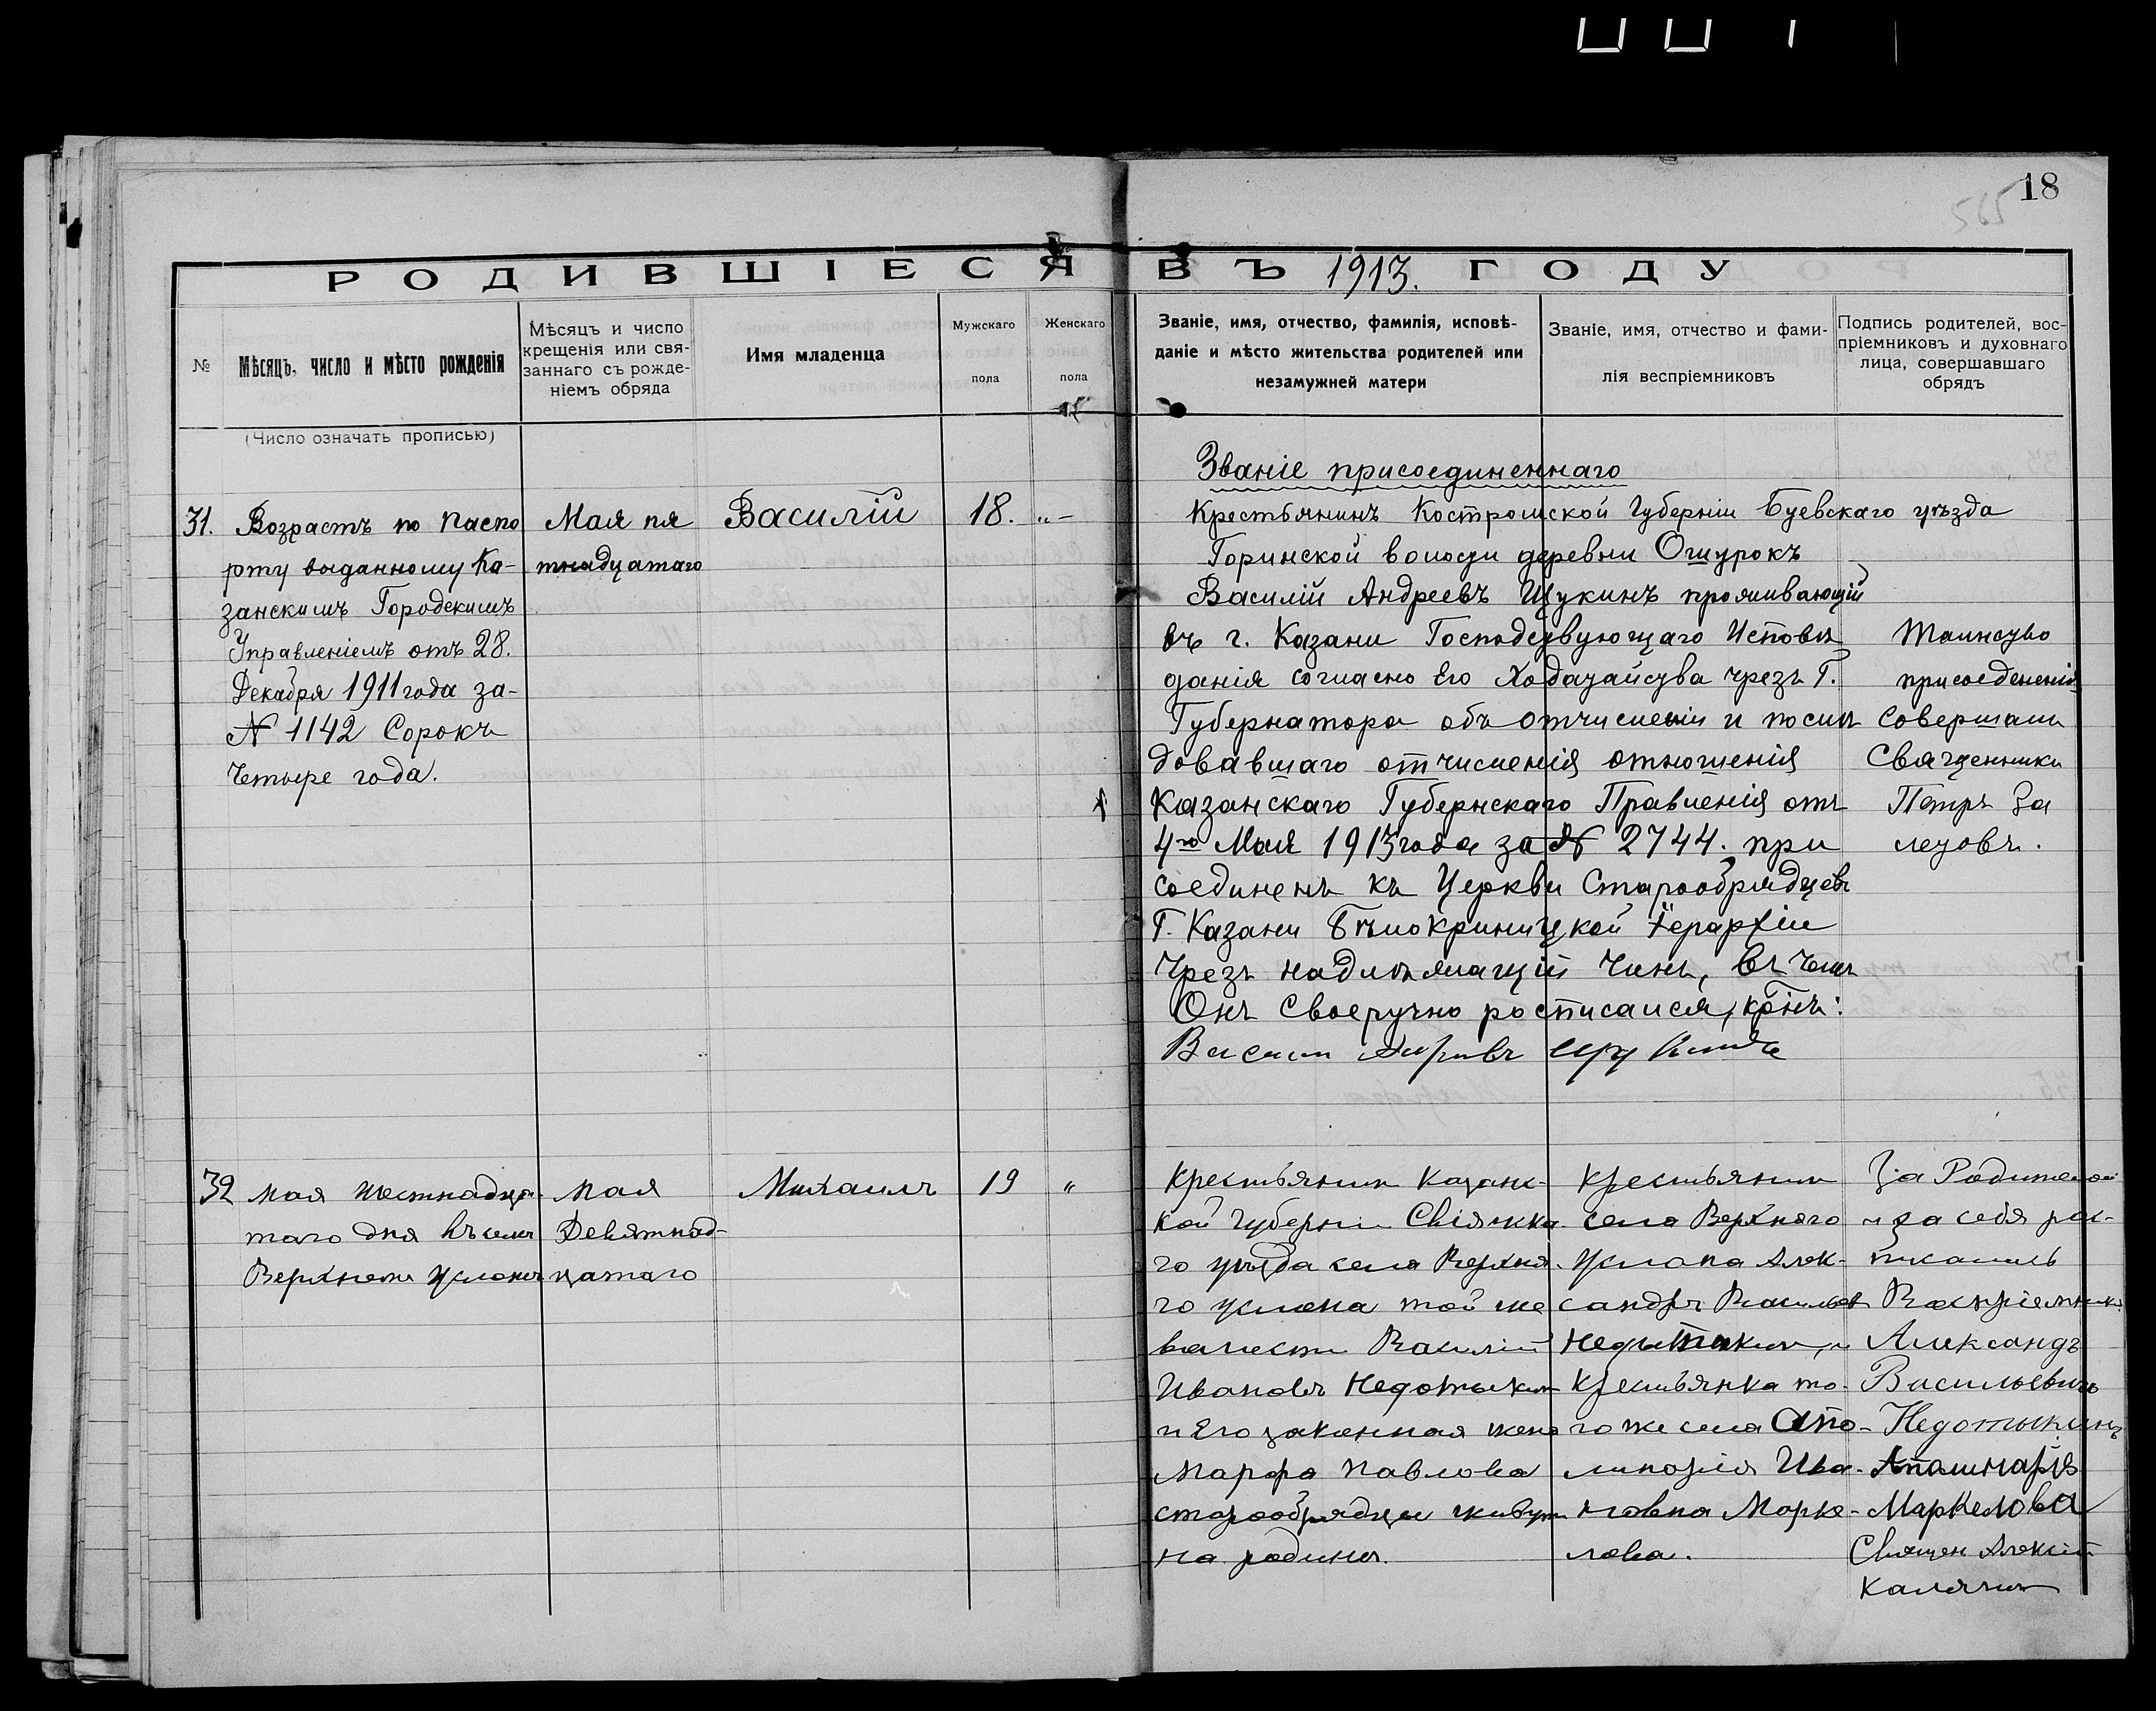 18
565
РОДИВШІЕСЯ ВЪ 1913. ГОДУ
№
Мѣсяцъ, число и мѣсто рожденія
(Число означать прописью)
Мѣсяцъ и число
крещенія или свя-
заннаго съ рожде-
ніемъ обряда
Имя младенца
Мужскаго
пола
Женскаго
пола
Званіе, имя, отчество, фамилія, исповѣ-
даніе и мѣсто жительства родителей или
незамужней матери
Званіе, имя, отчество и фами-
лія веспріемниковъ
Подпись родителей, вос-
пріемниковъ и духовнаго
лица, совершавшаго
обрядъ
31.
Возрастъ по паспо
рту выданному Ка-
занскимъ Городскимъ
Управленіемъ отъ 28.
Декабря 1911 года за-
№ 1142 Сорокъ
Четыре года.
Мая пя
тнадцатаго
Василій
18.
„ –
Званіе присоединеннаго
Крестьянинъ Костромской Губерніи Буевскаго уѣзда
Горинской волости деревни Ошурокъ
Василій Андреевъ Щукинъ проживающій
въ г. Казани Господствующаго Исповѣ
данія согласно Его Ходатайства чрезъ Г.
Губернатора объ отчисленіи и послѣ
довавшаго отчисленія отношенія
Казанскаго Губернскаго Правленія отъ
4го Мая 1913 года за № 2744. при
соединенъ къ Церкви Старообрядцевъ
Г. Казани Бѣлокриницкой Іерархіи
Чрезъ надлѣжащій Чинъ, въ чемъ
Онъ Своеручно росписался,
Щукинъ
Таинство
присоеденения
совершалъ
Священникъ
Петръ За
летовъ.
32
мая шестнадца-
таго дня въ селѣ
Верхнемъ Услонѣ
мая
Девятнад-
цатаго
Михаилъ
19
„
Крестьянинъ Казанс-
кой губерніи Свіяжска-
го уѣзда села Верхня-
го Услона той же
волости Василій
Ивановъ Недотыкинъ
и Его законная жена
Марфа Павлова
старообрядцы живутъ
на родинѣ.
Крестьянинъ
села Верхняго
Услона Алек-
сандръ Васильевъ
Недотыкинъ, и
Крестьянка то-
го же села Апо-
линарія Ива-
новна Марке-
лова.
За Родителей
и за себя рос-
писались
Воспріемники
Александъ
Васильевичъ
Недотыкинъ
Апалинарія
Маркелова
Священ Алексій
Калягинъ